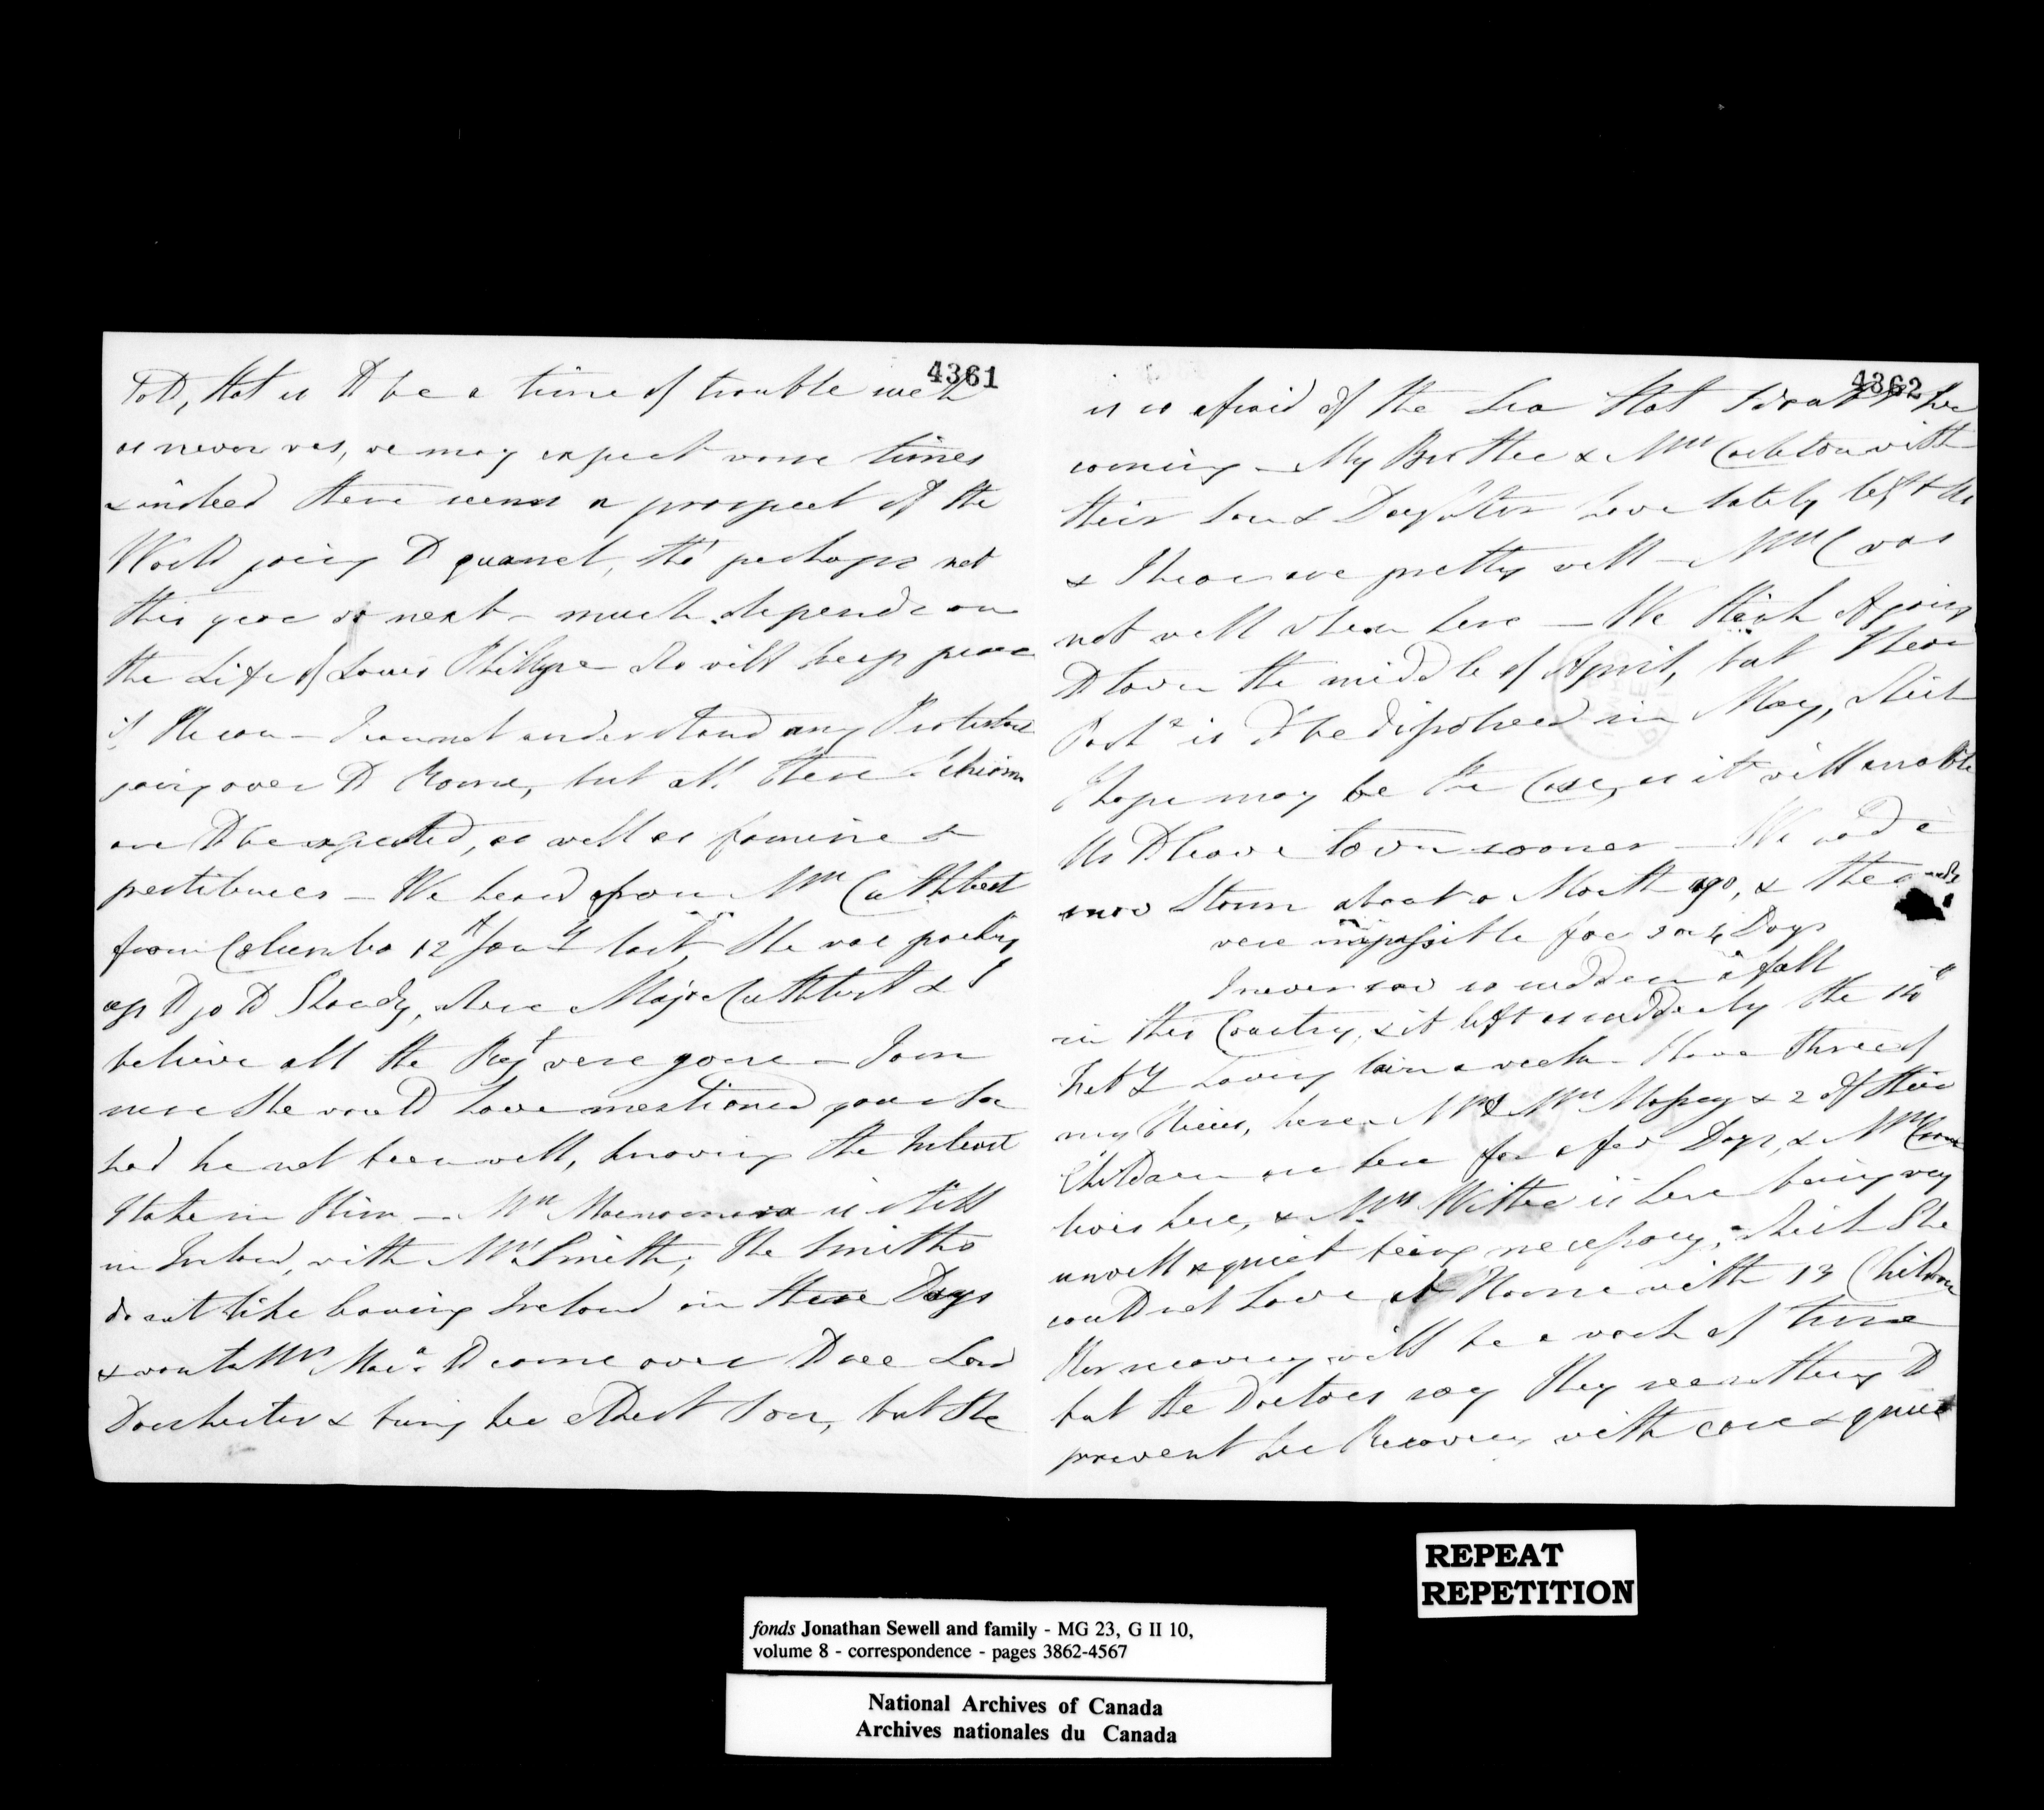 4361
told, that is to be a time of trouble such
as never was, we may expect worse times
& indeed there seems a prospect of the
World going to quarrel, tho' perhaps not
this year or next - much depends on
the Life of Louis Phillype who will keep peace
if He can - I cannot understand any Protestant
going over to Rome, but all these Schisms
are to be expected, as well as famine &
pestilences - We heard from Mrs Cuthbert
from Columbo 12th Jany last, She was packing
up to go to Kandy, where Major Cuthbert & I
believe all the Regt were gone - I am
sure She would have mentioned your Son
had he not been well, knowing the Interest
I take in Him - Mrs Macnamara is still
in Ireland, with Mrs Smith; The Smiths
do not like leaving Ireland in these Days
& want Mrs Maca to come over to see Lord
Dorchester & bring her eldest Son, but She
4362
is so afraid of the Sea that I doubt her
coming - My Brother & Mrs Carleton with
their Son & Daughter have lately left Us
& I hear are pretty well - Mrs C was
not well when here - We think of going
to town the middle of April, but I hear
Part is to be dissolved in May, which
I hope may be the Case, as it will enable
Us to leave town sooner - We had a
snow Storm about a Month ago, & the roads
were impassible for 3 or 4 Days
I never saw so sudden a fall
in this Country, & it left as suddenly the
Feby having lain a week - I have three of
my Nieces, here Mr & Mrs Massey & 2 of their
Children are here for a few Days, & Mrs
lives here, & Mrs is here being very
unwell & quiet being necessary, which She
could not have at Home with 13 Children
Her recovery will be a work of time
but the Doctors say They see nothing to
prevent her Recovery with care & quiet
REPEAT
REPETITION
fonds Jonathan Sewell and family - MG 23, G II 10,
volume 8 - correspondence - pages 3862-4567
National Archives of Canada
Archives nationales du Canada